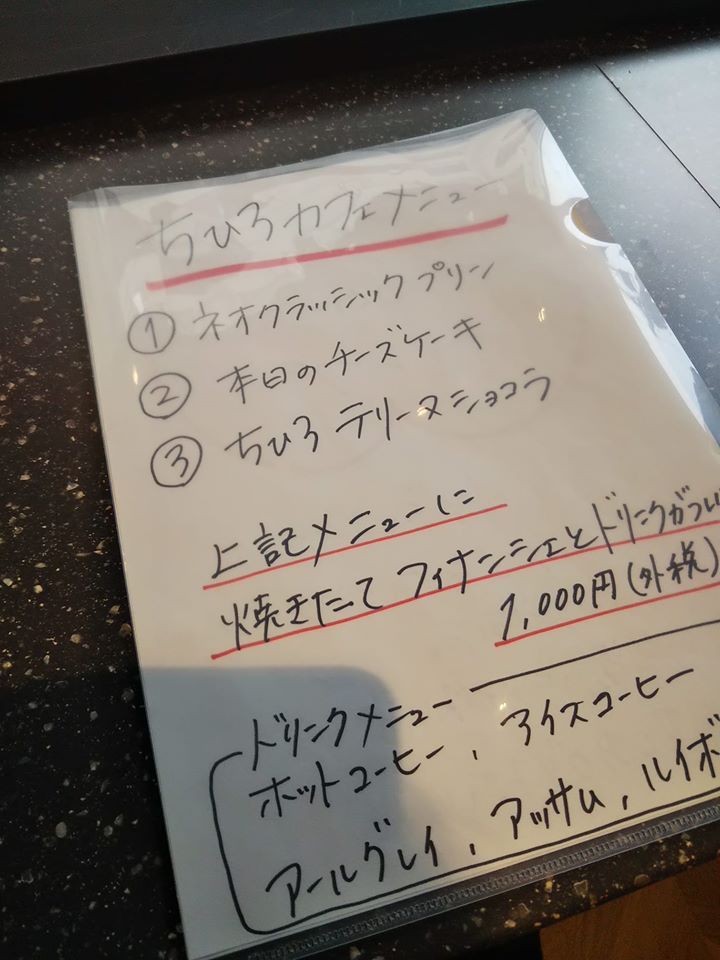 ちひろカフェメニュー
① ネオクラッシックプリン
② 本日のチーズケーキ
③ ちひろテリーヌショコラ
上記メニューに
焼きたてフィナンシェとドリンクがつい
1,000円(外税)
ドリンクメニュー
ホットコーヒー、アイスコーヒー
アールグレイ、アッサム、ルイボ